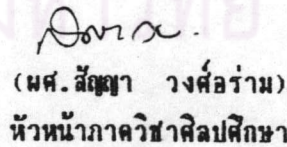 (ผศ.สัญญา วงศ์อร่าม)
หัวหน้าภาควิชาศิลปศึกษา